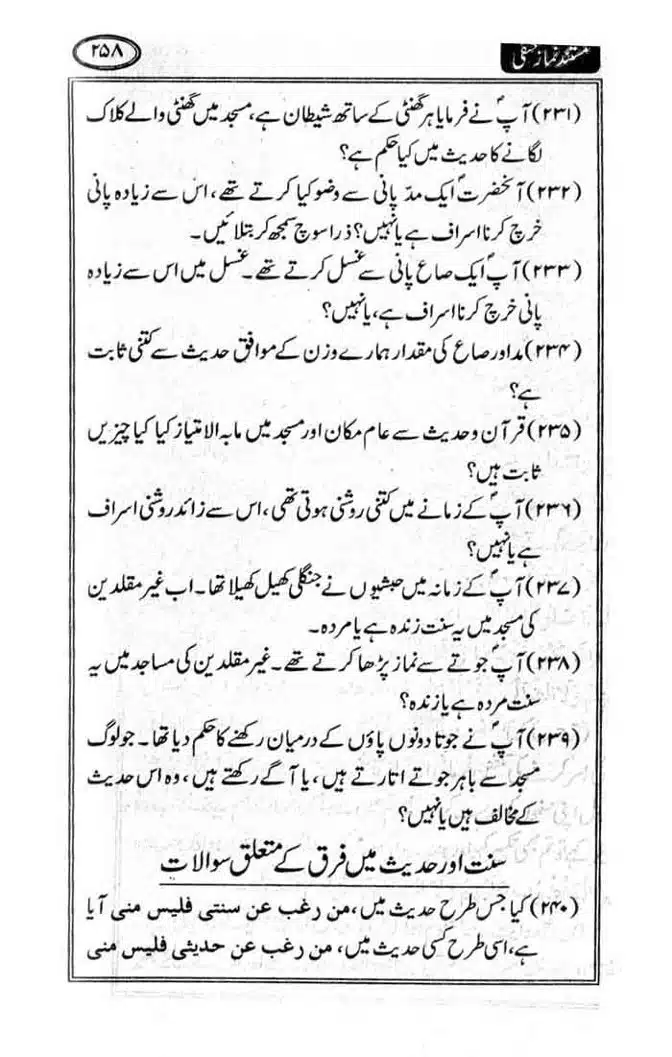 ۲۵۸
مستند نماز حنفی
(۲۳۱) آپؐ نے فرمایا ہر گھنٹی کے ساتھ شیطان ہے، مسجد میں گھنٹی والے کلاک
لگانے کا حدیث میں کیا حکم ہے؟
(۲۳۲) آنحضرتؐ ایک مدّ پانی سے وضو کیا کرتے تھے، اس سے زیادہ پانی
خرچ کرنا اسراف ہے یا نہیں؟ ذرا سوچ سمجھ کر بتلائیں۔
(۲۳۳) آپؐ ایک صاع پانی سے غسل کرتے تھے۔ غسل میں اس سے زیادہ
پانی خرچ کرنا اسراف ہے، یا نہیں؟
(۲۳۴) مد اور صاع کی مقدار ہمارے وزن کے موافق حدیث سے کتنی ثابت
ہے؟
(۲۳۵) قرآن و حدیث سے عام مکان اور مسجد میں مابہ الامتیاز کیا کیا چیزیں
ثابت ہیں؟
(۲۳۶) آپؐ کے زمانے میں کتنی روشنی ہوتی تھی، اس سے زائد روشنی اسراف
ہے یا نہیں؟
(۲۳۷) آپؐ کے زمانہ میں حبشیوں نے جنگلی کھیل کھیلا تھا۔ اب غیر مقلدین
کی مسجد میں یہ سنت زندہ ہے یا مردہ۔
(۲۳۸) آپؐ جوتے سے نماز پڑھا کرتے تھے۔ غیر مقلدین کی مساجد میں یہ
سنت مردہ ہے یا زندہ؟
(۲۳۹) آپؐ نے جوتا دونوں پاؤں کے درمیان رکھنے کا حکم دیا تھا۔ جو لوگ
مسجد سے باہر جوتے اتارتے ہیں، یا آگے رکھتے ہیں، وہ اس حدیث
کے مخالف ہیں یا نہیں؟
سنت اور حدیث میں فرق کے متعلق سوالات
(۲۴۰) کیا جس طرح حدیث میں، من رغب عن سنتی فلیس منی آیا
ہے، اسی طرح کسی حدیث میں، من رغب عن حدیثی فلیس منی